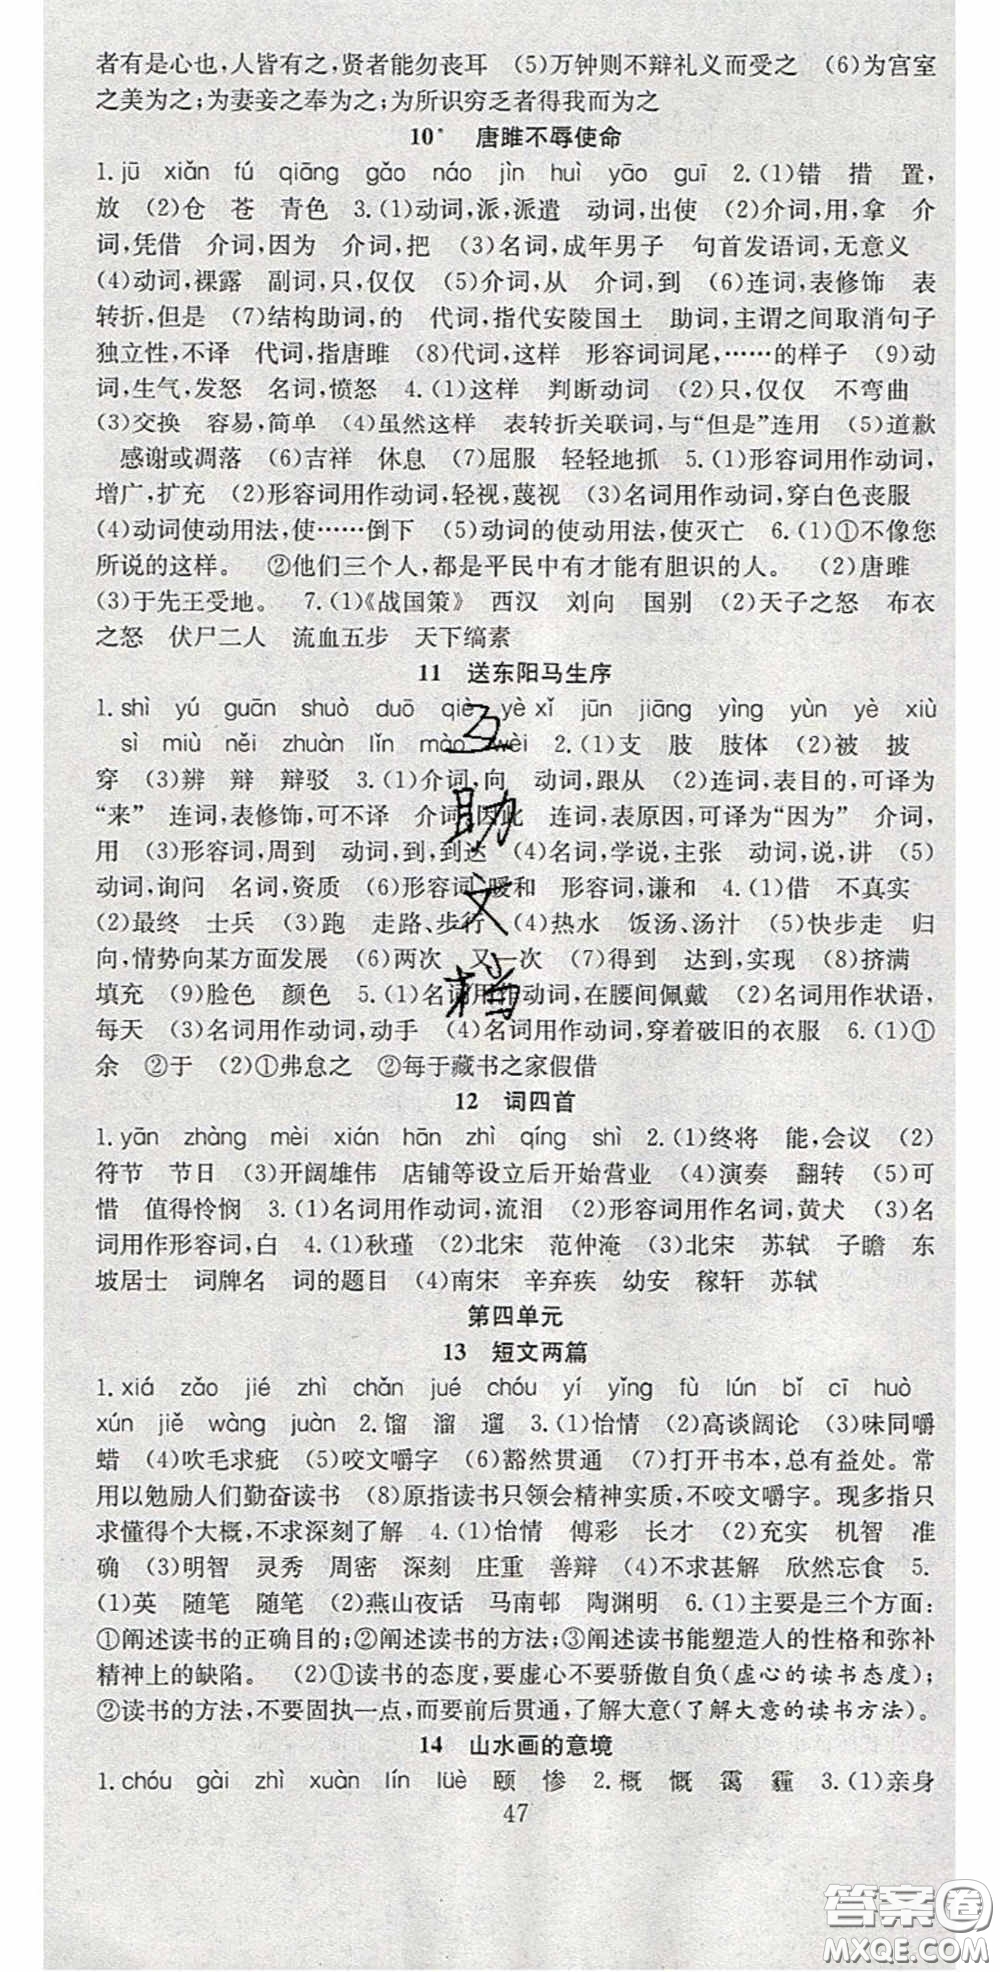 者有是心也,人皆有之,贤者能勿丧耳 (5)万钟则不辩礼义而受之 (6)为宫室
之美为之;为妻妾之奉为之;为所识穷乏者得我而为之
10* 唐雎不辱使命
1.jū xiǎn fú qiāng gǎo náo jìn huì yāo guī 2.(1)错 措 置,
放 (2)仓 苍 青色 3.(1)动词,派,派遣 动词,出使 (2)介词,用,拿 介
词,凭借 介词,因为 介词,把 (3)名词,成年男子 句首发语词,无意义
(4)动词,裸露 副词,只,仅仅 (5)介词,从 介词,到 (6)连词,表修饰 表
转折,但是 (7)结构助词,的 代词,指代安陵国土 助词,主谓之间取消句子
独立性,不译 代词,指唐雎 (8)代词,这样 形容词词尾,……的样子 (9)动
词,生气,发怒 名词,愤怒 4.(1)这样 判断动词 (2)只,仅仅 不弯曲
(3)交换 容易,简单 (4)虽然这样 表转折关联词,与“但是”连用 (5)道歉
感谢或凋落 (6)吉祥 休息 (7)屈服 轻轻地抓 5.(1)形容词用作动词,
增广,扩充 (2)形容词用作动词,轻视,蔑视 (3)名词用作动词,穿白色丧服
(4)动词使动用法,使……倒下 (5)动词的使动用法,使灭亡 6.(1)①不像您
所说的这样。 ②他们三个人,都是平民中有才能有胆识的人。 (2)唐雎
(3)于先王受地。 7.(1)《战国策》 西汉 刘向 国别 (2)天子之怒 布衣
之怒 伏尸二人 流血五步 天下缟素
11 送东阳马生序
1.shì yú guān shuò duō qiè yè xǐ jūn jiāng yìng yùn yè xiù
sì miù něi zhuàn lǐn mào wèi 2.(1)支 肢 肢体 (2)被 披
穿 (3)辨 辩 辩驳 3.(1)介词,向 动词,跟从 (2)连词,表目的,可译为
“来” 连词,表修饰,可不译 介词,因此 连词,表原因,可译为“因为” 介词,
用 (3)形容词,周到 动词,到,到达 (4)名词,学说,主张 动词,说,讲 (5)
动词,询问 名词,资质 (6)形容词,暖和 形容词,谦和 4.(1)借 不真实
(2)最终 士兵 (3)跑 走路、步行 (4)热水 饭汤、汤汁 (5)快步走 归
向,情势向某方面发展 (6)两次 又一次 (7)得到 达到,实现 (8)挤满
填充 (9)脸色 颜色 5.(1)名词用作动词,在腰间佩戴 (2)名词用作状语,
每天 (3)名词用作动词,动手 (4)名词用作动词,穿着破旧的衣服 6.(1)①
余 ②于 (2)①弗怠之 ②每于藏书之家假借
12 词四首
1.yān zhàng mèi xián hān zhì qíng shì 2.(1)终将 能,会议 (2)
符节 节日 (3)开阔雄伟 店铺等设立后开始营业 (4)演奏 翻转 (5)可
惜 值得怜悯 3.(1)名词用作动词,流泪 (2)形容词用作名词,黄犬 (3)名
词用作形容词,白 4.(1)秋瑾 (2)北宋 范仲淹 (3)北宋 苏轼 子瞻 东
坡居士 词牌名 词的题目 (4)南宋 辛弃疾 幼安 稼轩 苏轼
第四单元
13 短文两篇
1.xiá zǎo jié zhì chǎn jué chóu yí yǐng fù lún bǐ cī huò
xún jiě wàng juàn 2.馏 溜 遛 3.(1)怡情 (2)高谈阔论 (3)味同嚼
蜡 (4)吹毛求疵 (5)咬文嚼字 (6)豁然贯通 (7)打开书本,总有益处。常
用以勉励人们勤奋读书 (8)原指读书只领会精神实质,不咬文嚼字。现多指只
求懂得个大概,不求深刻了解 4.(1)怡情 傅彩 长才 (2)充实 机智 准
确 (3)明智 灵秀 周密 深刻 庄重 善辩 (4)不求甚解 欣然忘食 5.
(1)英 随笔 随笔 (2)燕山夜话 马南邨 陶渊明 6.(1)主要是三个方面:
①阐述读书的正确目的;②阐述读书的方法;③阐述读书能塑造人的性格和弥补
精神上的缺陷。 (2)①读书的态度,要虚心不要骄傲自负(虚心的读书态度);
②读书的方法,不要固执一点,而要前后贯通,了解大意(了解大意的读书方法)。
14 山水画的意境
1.chóu gài zhì xuàn lín lüè 颐 惨 2.概 慨 霭 霾 3.(1)亲身
47
互助文档
答案圈
MXQE.COM